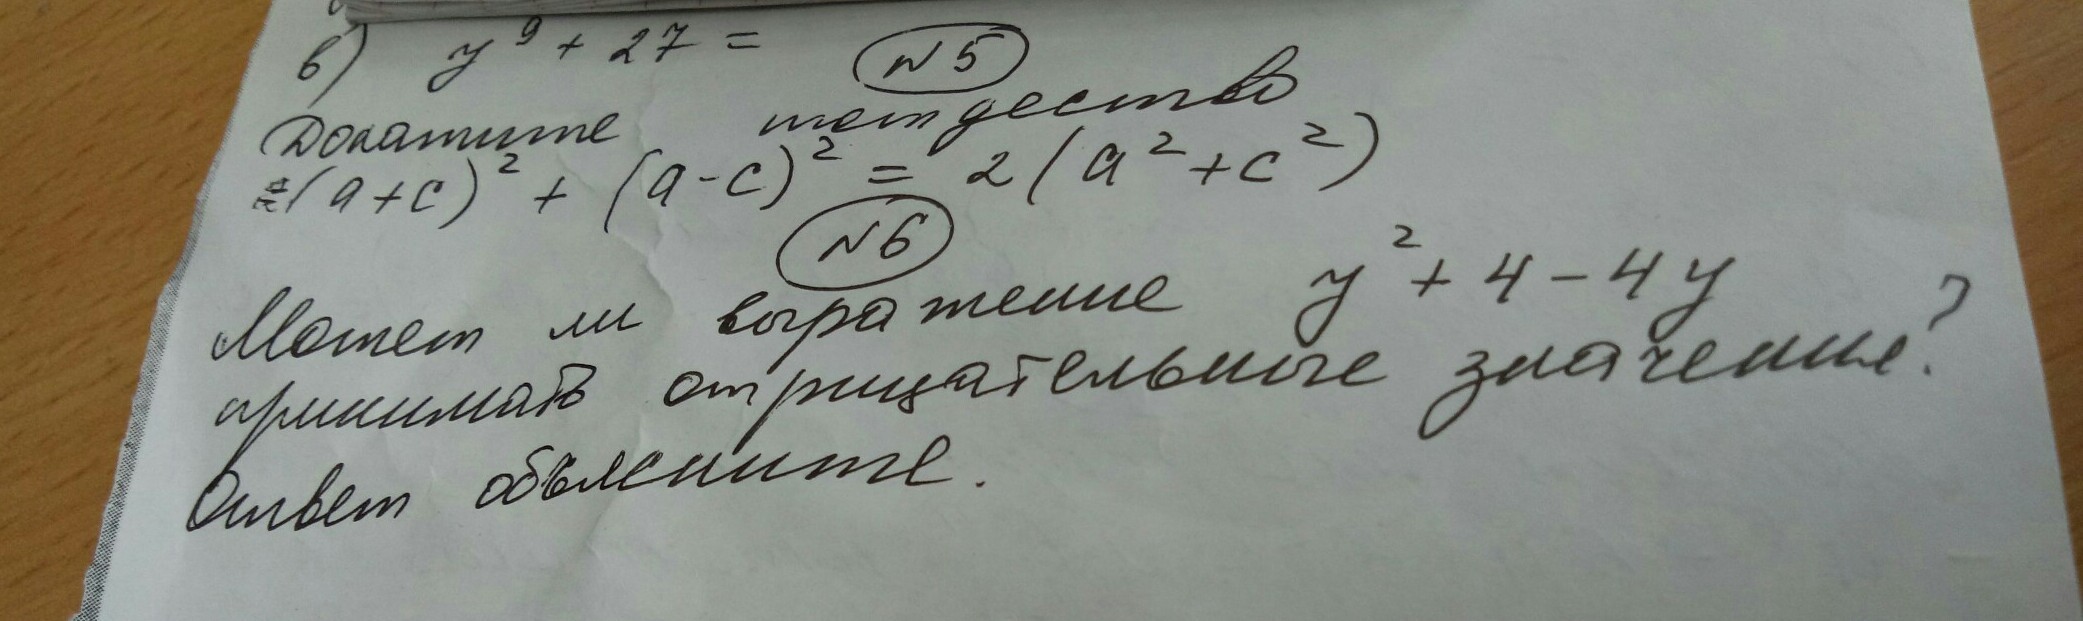 в) y⁹ + 27 =
№5
Докажите тождество
(a+c)² + (a-c)² = 2(a²+c²)
№6
Может ли выражение y² + 4 - 4y
принимать отрицательные значения?
Ответ объясните.